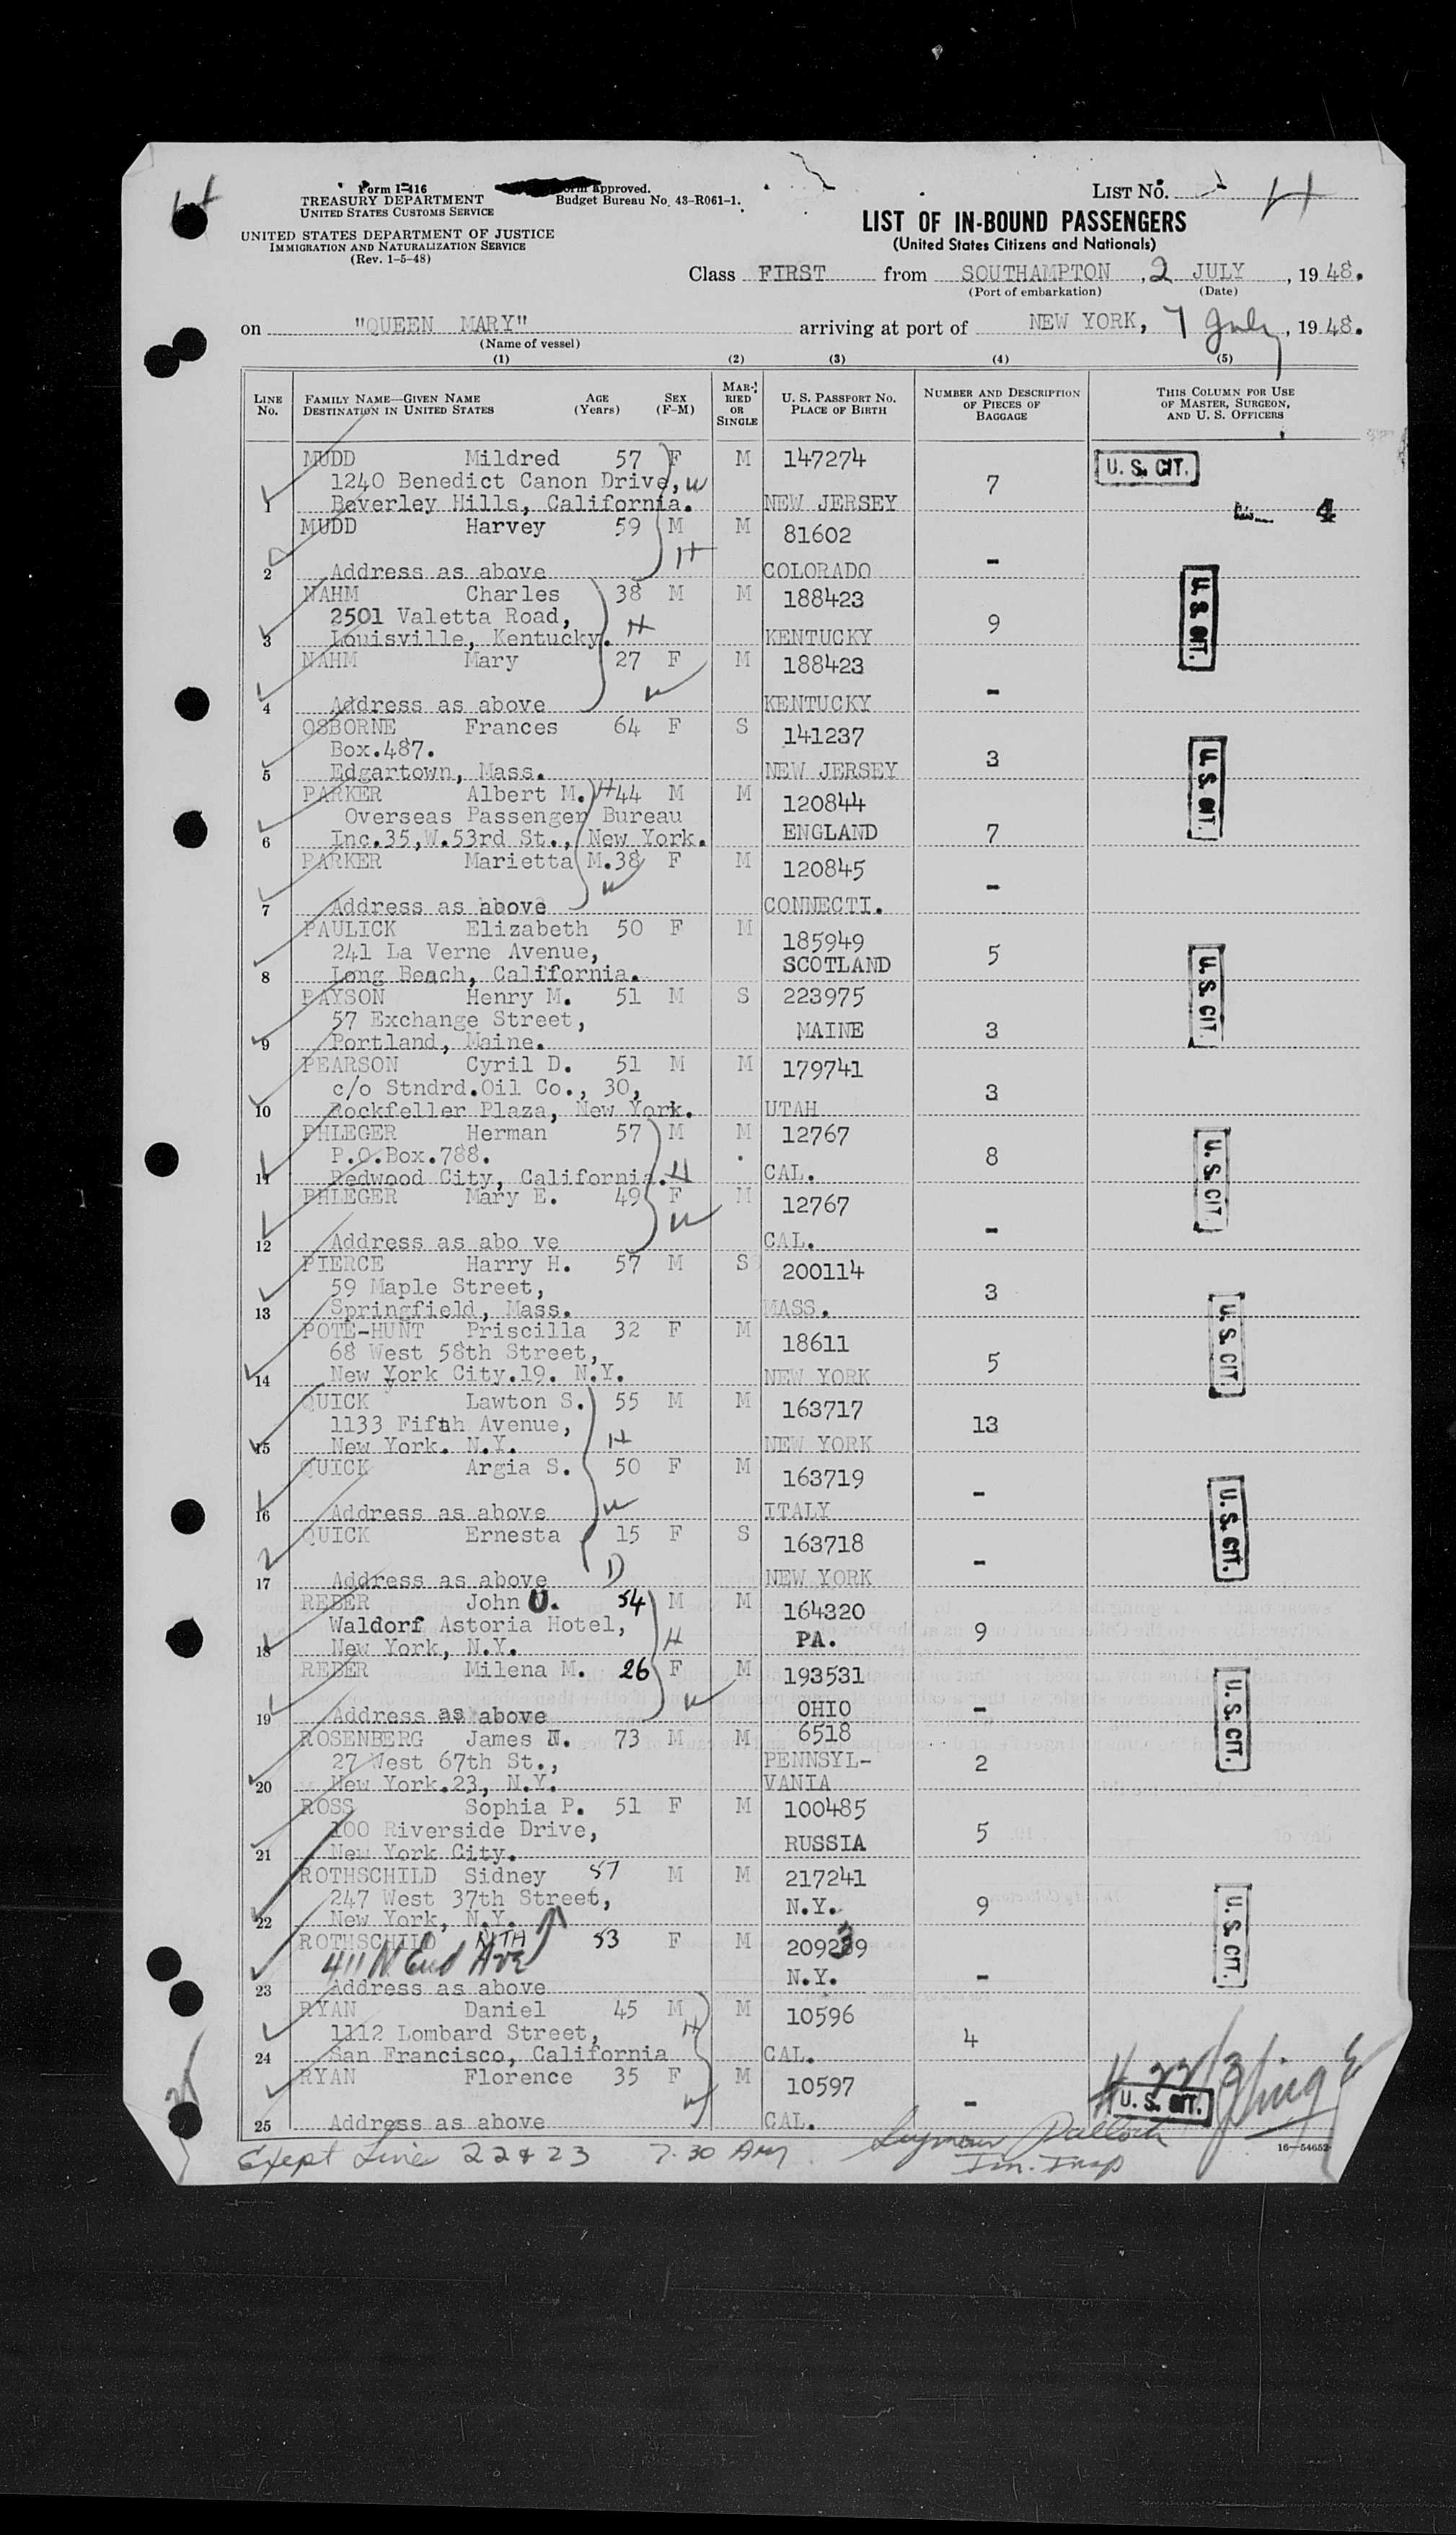 Form I-416
TREASURY DEPARTMENT
UNITED STATES CUSTOMS SERVICE
UNITED STATES DEPARTMENT OF JUSTICE
IMMIGRATION AND NATURALIZATION SERVICE
(Rev. 1-5-48)
Form approved.
Budget Bureau No. 43-R061-1.
LIST NO. 4
LIST OF IN-BOUND PASSENGERS
(United States Citizens and Nationals)
Class FIRST from SOUTHAMPTON, 2 JULY, 1948.
(Port of embarkation) (Date)
on "QUEEN MARY" arriving at port of NEW YORK, 7 July, 1948.
(Name of vessel)
(1) (2) (3) (4) (5)
LINE No. FAMILY NAME—GIVEN NAME DESTINATION IN UNITED STATES AGE (Years) SEX (F-M) MARRIED OR SINGLE U. S. PASSPORT No. PLACE OF BIRTH NUMBER AND DESCRIPTION OF PIECES OF BAGGAGE THIS COLUMN FOR USE OF MASTER, SURGEON, AND U. S. OFFICERS
MUDD Mildred 57 F M 147274 U. S. CIT.
1240 Benedict Canon Drive, W 7
1 Beverley Hills, California. NEW JERSEY 4
MUDD Harvey 59 M M 81602
H -
2 Address as above COLORADO
NAHM Charles 38 M M 188423 U. S. CIT.
2501 Valetta Road, H 9
3 Louisville, Kentucky. KENTUCKY
NAHM Mary 27 F M 188423
W -
4 Address as above KENTUCKY
OSBORNE Frances 64 F S 141237 U. S. CIT.
Box.487. 3
5 Edgartown, Mass. NEW JERSEY
PARKER Albert M. H 44 M M 120844
Overseas Passenger Bureau ENGLAND 7
6 Inc.35,W.53rd St., New York.
PARKER Marietta M.38 F M 120845
W -
7 Address as above CONNECTI.
PAULICK Elizabeth 50 F M 185949 U. S. CIT.
241 La Verne Avenue, SCOTLAND 5
8 Long Beach, California.
PAYSON Henry M. 51 M S 223975
57 Exchange Street, MAINE 3
9 Portland, Maine.
PEARSON Cyril D. 51 M M 179741
c/o Stndrd.Oil Co., 30, 3
10 Rockfeller Plaza, New York. UTAH
PHLEGER Herman 57 M M 12767 U. S. CIT.
P.O.Box.788. 8
11 Redwood City, California. H CAL.
PHLEGER Mary E. 49 F M 12767
W -
12 Address as abo ve CAL.
PIERCE Harry H. 57 M S 200114
59 Maple Street, 3
13 Springfield, Mass. MASS. U. S. CIT.
POTE-HUNT Priscilla 32 F M 18611
68 West 58th Street, 5
14 New York City.19. N.Y. NEW YORK
QUICK Lawton S. 55 M M 163717
1133 Fifth Avenue, 13
15 New York. N.Y. H NEW YORK
QUICK Argia S. 50 F M 163719 U. S. CIT.
W -
16 Address as above ITALY
QUICK Ernesta 15 F S 163718
-
17 Address as above D NEW YORK
REBER John U. 54 M M 164320
Waldorf Astoria Hotel, H PA. 9
18 New York, N.Y.
REBER Milena M. 26 F M 193531 U. S. CIT.
W OHIO -
19 Address as above
ROSENBERG James N. 73 M M 6518
27 West 67th St., PENNSYL- 2
20 New York.23, N.Y. VANIA
ROSS Sophia P. 51 F M 100485
100 Riverside Drive, RUSSIA 5
21 New York City.
ROTHSCHILD Sidney 57 M M 217241 U. S. CIT.
247 West 37th Street, N.Y. 9
22 New York, N.Y.
ROTHSCHILD 53 F M 209239
N.Y. -
23 Address as above
RYAN Daniel 45 M M 10596
1112 Lombard Street, H 4
24 San Francisco, California CAL.
RYAN Florence 35 F M 10597 U. S. CIT.
W -
25 Address as above CAL.
Exept Line 22 & 23 7.30 AM Seymour
Im. Insp
16—54652